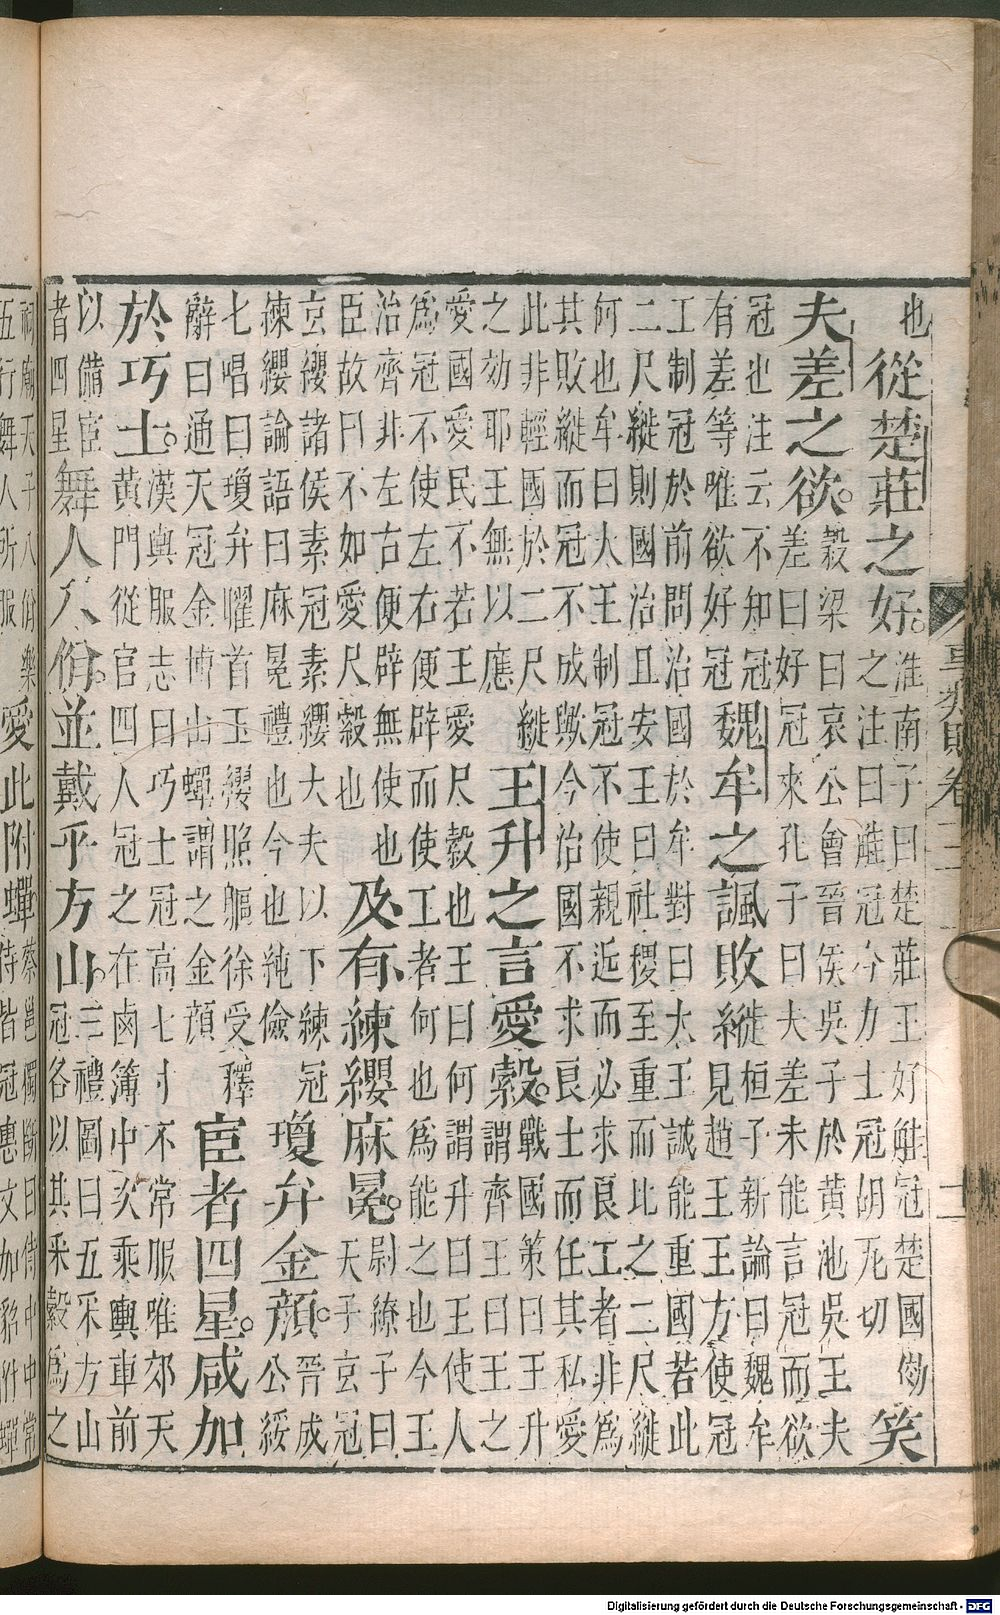 也從楚莊之好。淮南子曰楚莊王好觟冠楚國効
之注曰觟冠今力士冠胡瓦切笑
夫差之欲。榖梁曰哀公會晉侯吳子於黄池吳王夫
差曰好冠來孔子曰大差未能言冠而欲
冠也注云不知冠
有差等唯欲好冠魏牟之諷敗縰桓子新論曰魏牟
見趙王王方使冠
工制冠於前問治國於牟對曰大王誠能重國若此
二尺縰則國治且安王曰社稷至重而比之二尺縰
何也牟曰大王制冠不使親近而必求良工者非為
其敗縰而冠不成歟今治國不求良士而任其私愛
此非輕國於二尺縰
之効耶王無以應王升之言愛縠。戰國策曰王升
謂齊王曰王之
愛國愛民不若王愛尺縠也王曰何謂升曰王使人
為冠不使左右便辟而使工者何也為能之也今王
治齊非左右便辟無使也
臣故曰不如愛尺縠也及有練纓麻冕。尉繚子曰
天子玄冠
玄纓諸侯素冠素纓大夫以下練冠
練纓論語曰麻冕禮也今也純儉瓊弁金顏。晉成
公綏
七唱曰瓊弁曜首玉纓照軀徐受釋
辭曰通天冠金博山蟬謂之金顔宦者四星。咸加
於巧士。漢輿服志曰巧士冠高七寸不常服唯郊天
黃門從官四人冠之在鹵簿中次乘輿車前
以備宦
者四星舞人八佾。並戴乎方山。三禮圖曰五采方山
冠各以其采縠為之
祠廟天子八佾樂
五行舞人所服愛此附蟬蔡邕獨斷曰侍中中常
侍皆冠惠文加貂附蟬
Digitalisierung gefördert durch die Deutsche Forschungsgemeinschaft - DFG